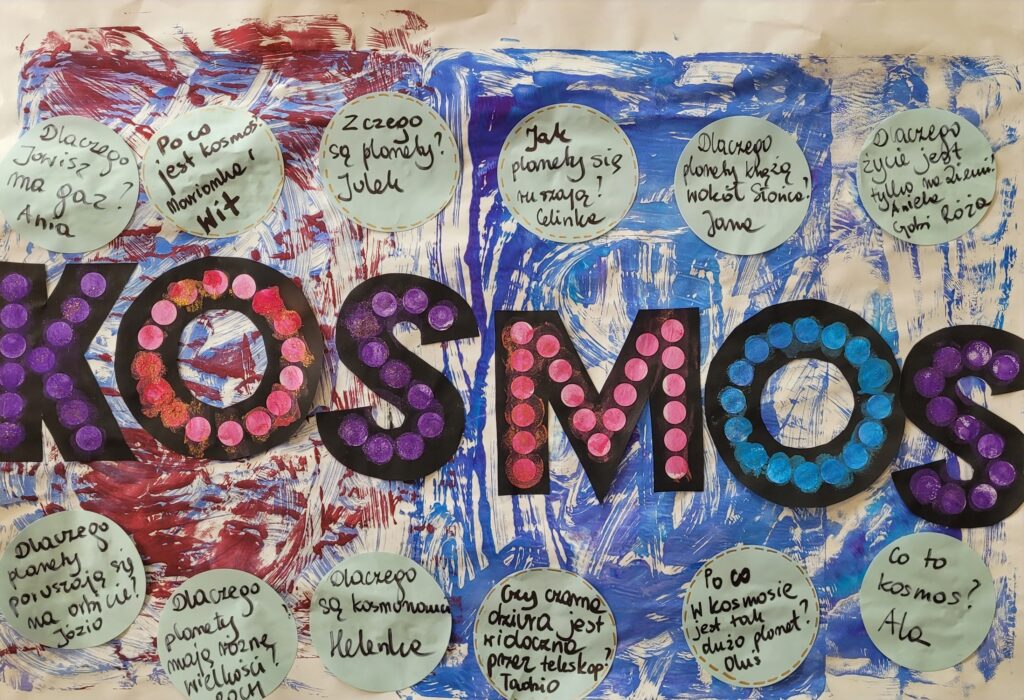 Dlaczego
Jowisz
ma gaz?
Ania
Po co
jest kosmos?
Mariomka i
Wit
Z czego
są planety?
Julek
Jak
planety się
ruszają?
Celinka
Dlaczego
planety krążą
wokół Słońca?
Jana
Dlaczego
życie jest
tylko na Ziemi?
Aniela
Gabi Róża
KOSMOS
Dlaczego
planety
poruszają się
na orbicie?
Józio
Dlaczego
planety
mają różne
wielkości?
ROCH
Dlaczego
są kosmonauci
Helenka
Czy czarna
dziura jest
widoczna
przez teleskop?
Tadzio
Po co
w kosmosie
jest tak
dużo planet?
Oluś
Co to
kosmos?
Ala